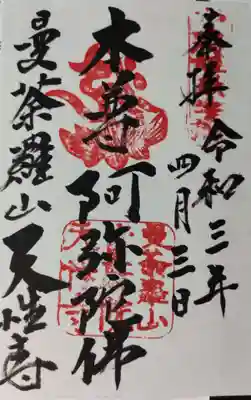 奉拝 令和三年
四月三日
本尊 阿弥陀佛
曼荼羅山 天性寺